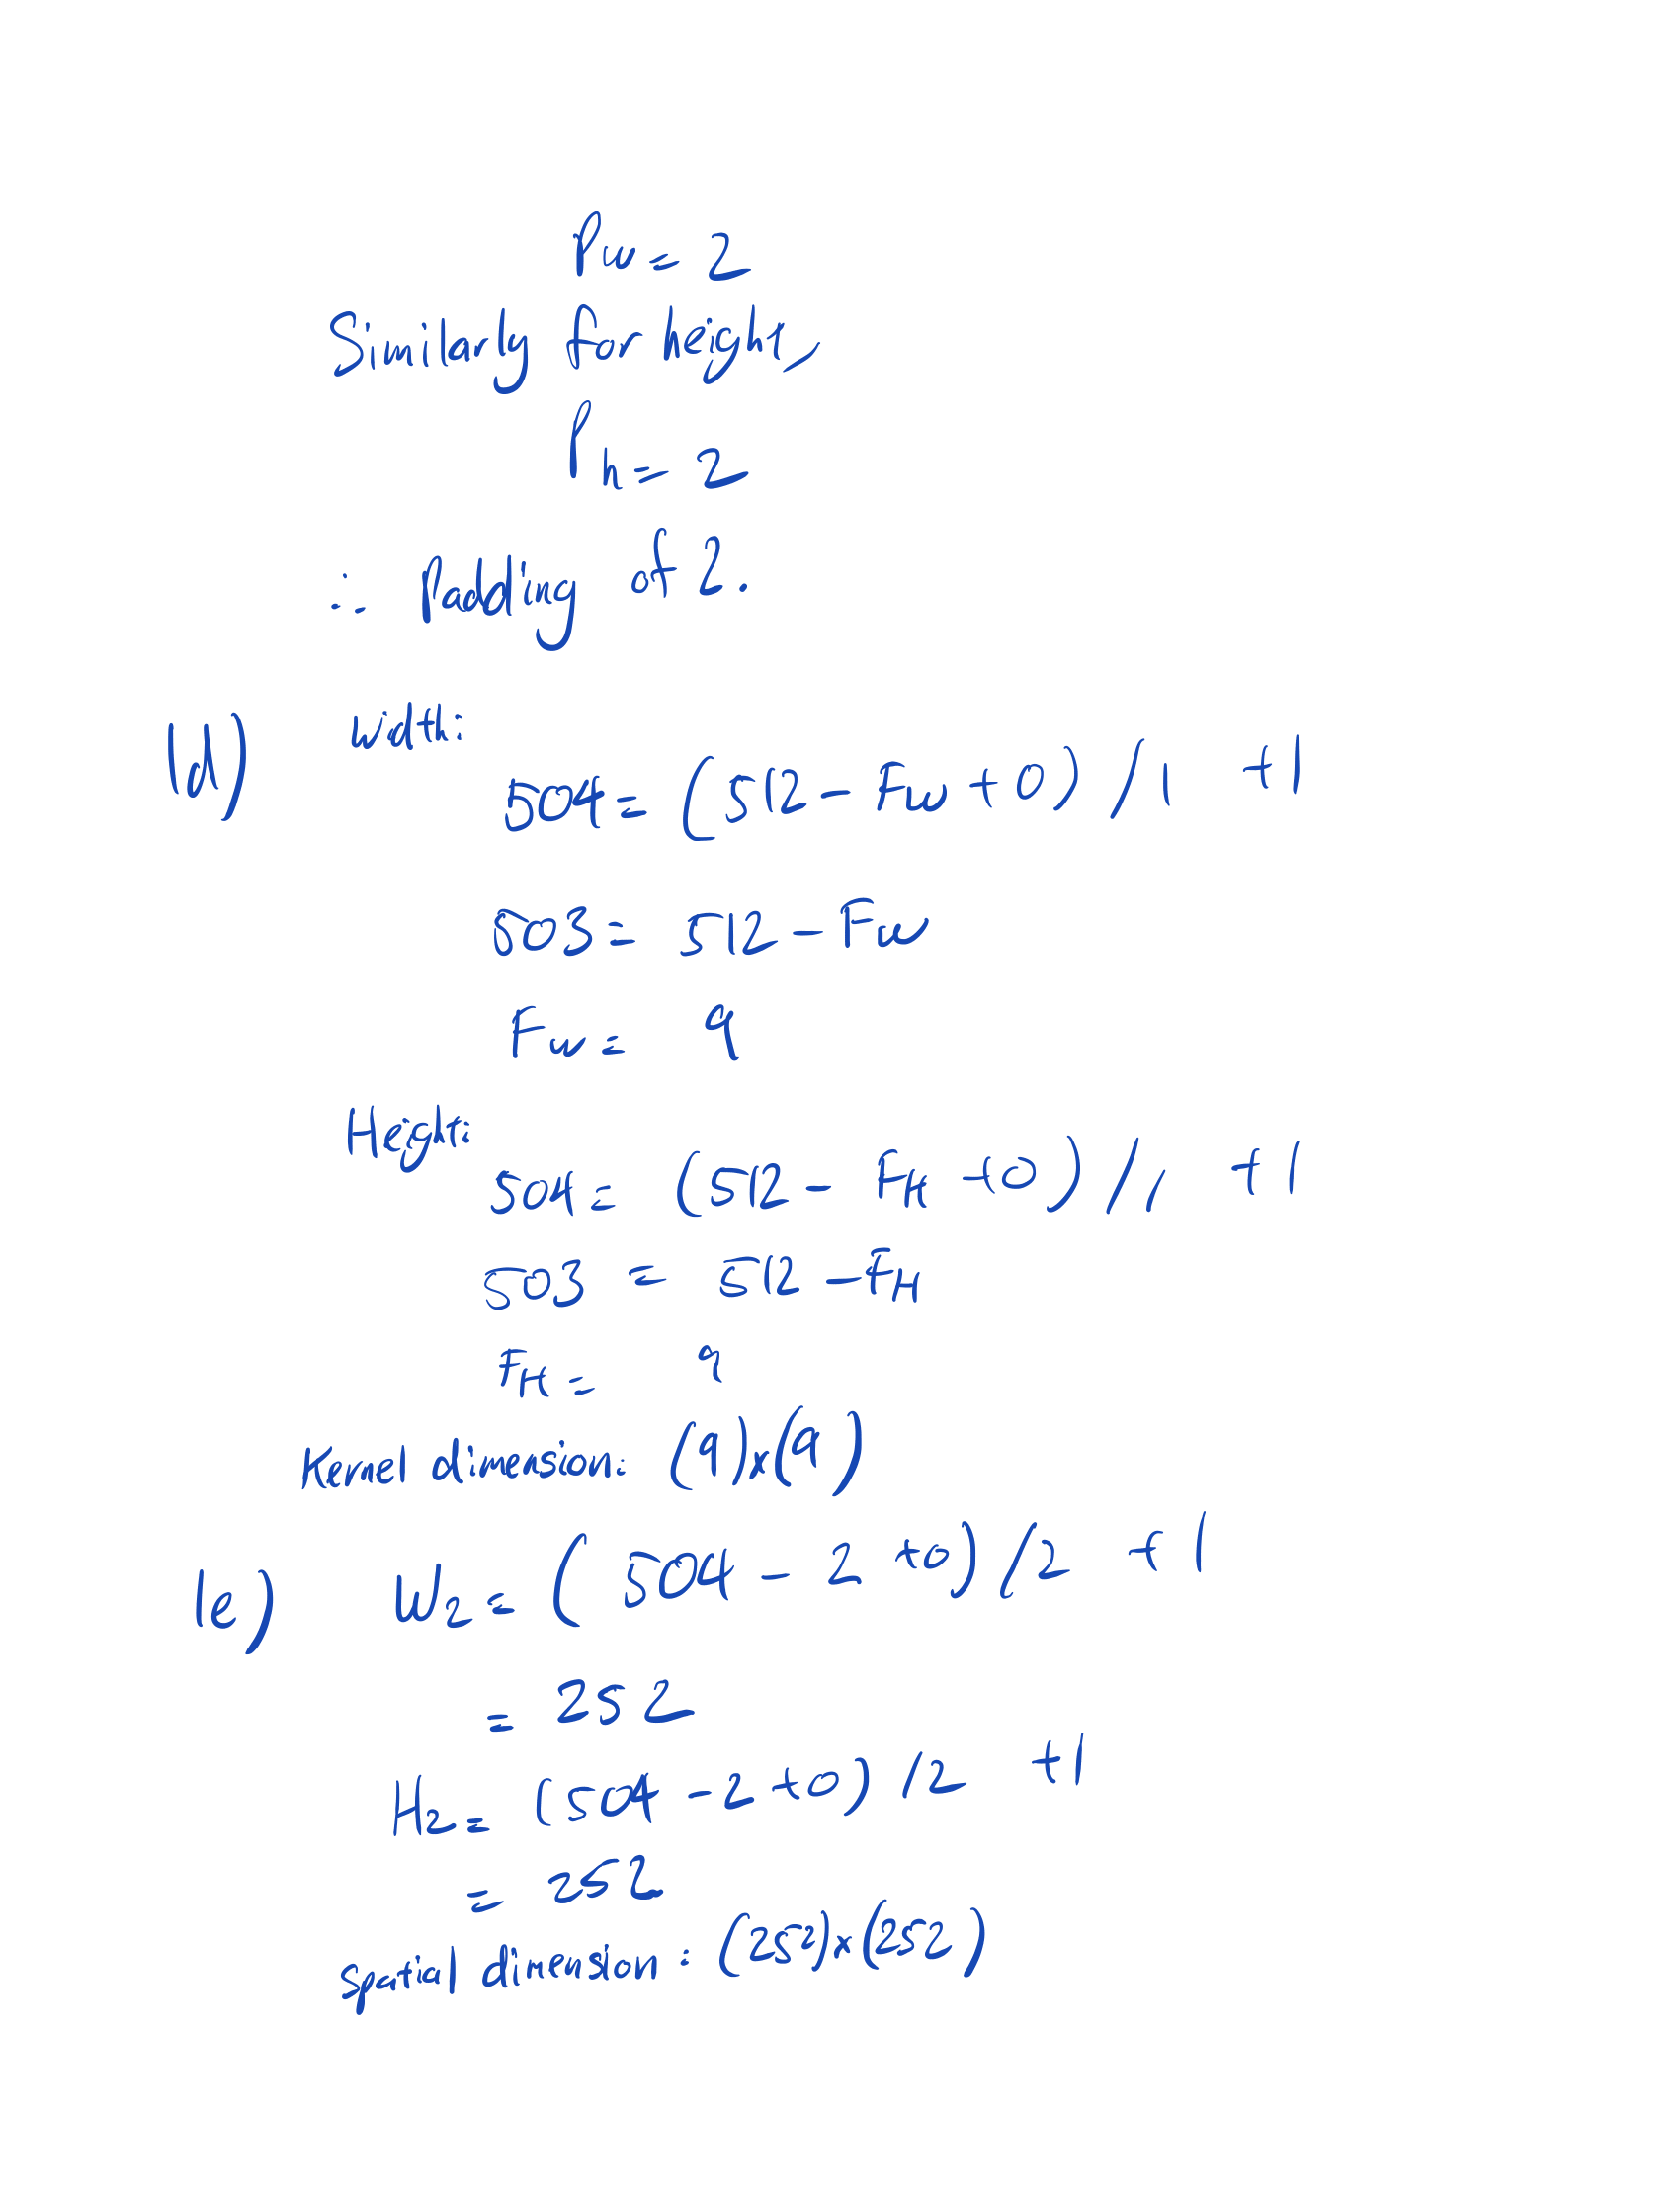 Pw = 2
Similarly for height,
Ph = 2
∴ Padding of 2.
1d) Width:
504 = (512 - Fw + 0) / 1 + 1
503 = 512 - Fw
Fw = 9
Height:
504 = (512 - FH + 0) / 1 + 1
503 = 512 - FH
FH = 9
Kernel dimension: (9)x(9)
1e) W2 = (504 - 2 + 0) / 2 + 1
= 252
H2 = (504 - 2 + 0) / 2 + 1
= 252
Spatial dimension: (252)x(252)